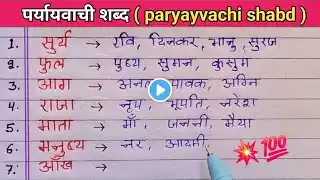 पर्यायवाची शब्द ( paryayvachi shabd )
1. सुर्य → रवि, दिनकर, भानु, सुरज
2. फुल → पुष्प, सुमन, कुसुम
3. आग → अनल, पावक, अग्नि
4. राजा → नृप, भूपति, नरेश
5. माता → माँ, जननी, मैया
6. मनुष्य → नर, आदमी,
7. आँख →
💥 💯